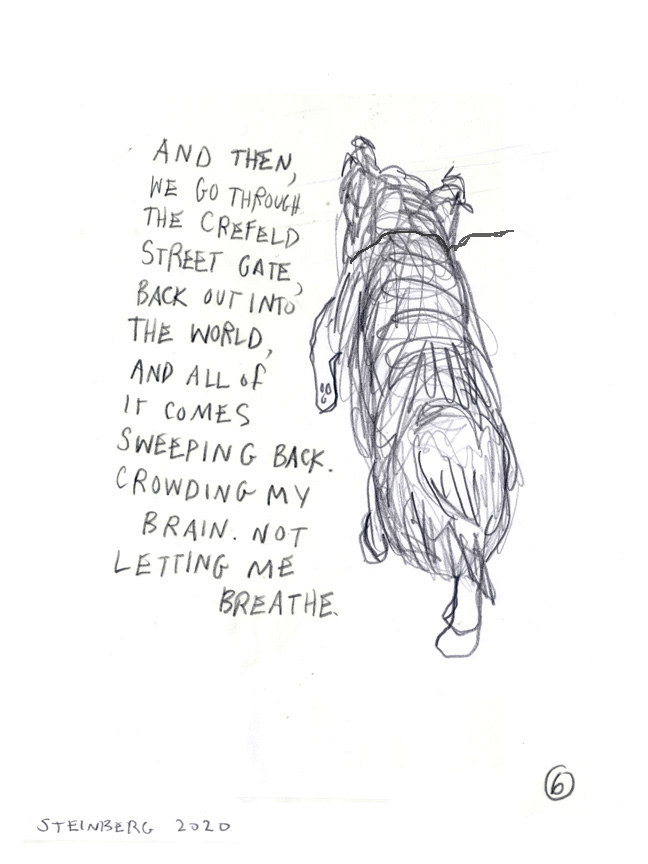 AND THEN,
WE GO THROUGH
THE CREFELD
STREET GATE,
BACK OUT INTO
THE WORLD,
AND ALL OF
IT COMES
SWEEPING BACK.
CROWDING MY
BRAIN. NOT
LETTING ME
BREATHE.
6
STEINBERG 2020